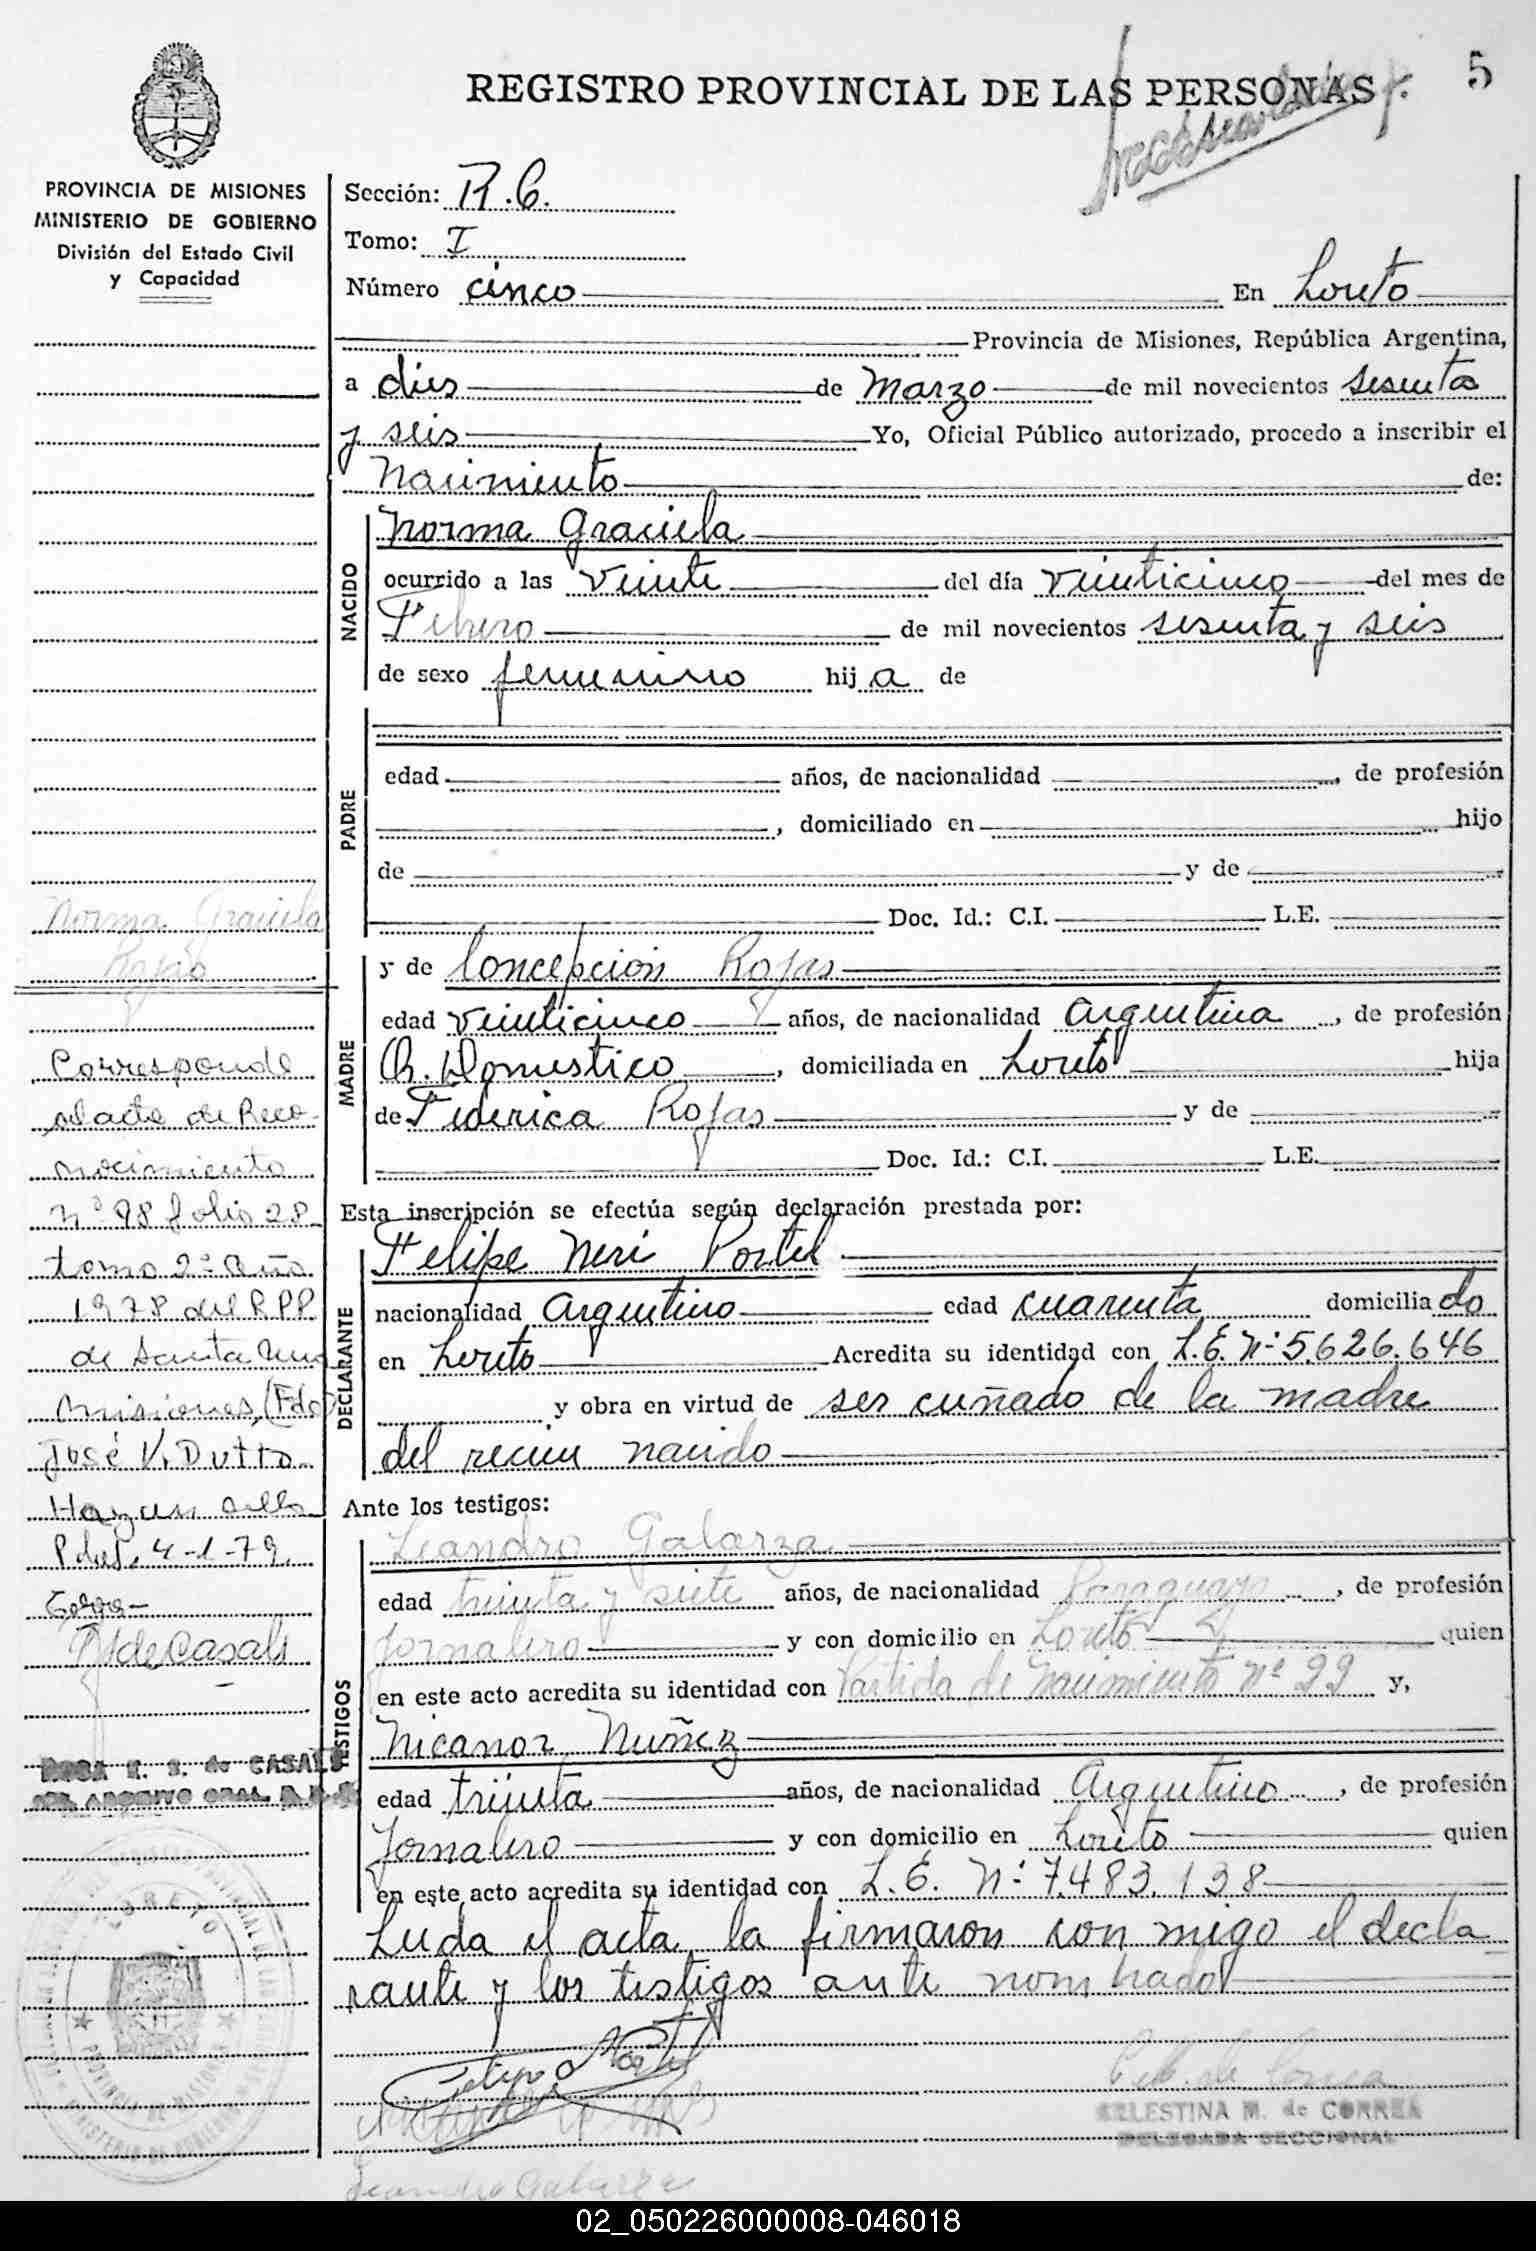 REGISTRO PROVINCIAL DE LAS PERSONAS
5
PROVINCIA DE MISIONES
MINISTERIO DE GOBIERNO
División del Estado Civil
y Capacidad
Sección: R.C.
Tomo: I
Número cinco En Loreto
Provincia de Misiones, República Argentina,
a dies de Marzo de mil novecientos sesenta
y seis Yo, Oficial Público autorizado, procedo a inscribir el
Nacimiento de:
NACIDO
Norma Graciela
ocurrido a las veinte del día veinticinco del mes de
Febrero de mil novecientos sesenta y seis
de sexo femenino hija de
PADRE
edad años, de nacionalidad , de profesión
, domiciliado en hijo
de y de
Doc. Id.: C.I. L.E.
MADRE
y de Concepción Rojas
edad veinticinco años, de nacionalidad Argentina , de profesión
Q. Domestico , domiciliada en Loreto hija
de Federica Rojas y de
Doc. Id.: C.I. L.E.
Esta inscripción se efectúa según declaración prestada por:
DECLARANTE
Felipe Neri Portel
nacionalidad Argentino edad cuarenta domiciliado
en Loreto Acredita su identidad con L.E. Nº 5.626.646
y obra en virtud de ser cuñado de la madre
del recien nacido
Ante los testigos:
TESTIGOS
Leandro Galarza
edad treinta y siete años, de nacionalidad Paraguayo , de profesión
Jornalero y con domicilio en Loreto quien
en este acto acredita su identidad con Partida de Nacimiento Nº 22 y,
Nicanor Nuñez
edad treinta años, de nacionalidad Argentino , de profesión
Jornalero y con domicilio en Loreto quien
en este acto acredita su identidad con L.E. Nº 7.483.138
Leida el acta, la firmaron con migo el decla
rante y los testigos ante nombrados
Felipe Portel
Leandro Galarza
CELESTINA M. de CORREA
DELEGADA SECCIONAL
Norma Graciela
Rojas
Corresponde
al acta de Reco-
nocimiento
Nº 98 folio 28
tomo 2º año
1978 del R.P.P.
de Santa Ana
Misiones, (Fdo)
José V. Dutto
Hay un sello
Pdas. 4-1-79.
R de Casals
ROSA E. S. de CASALS
LORETO
PROVINCIA DE MISIONES
MINISTERIO DE GOBIERNO
02_050226000008-046018